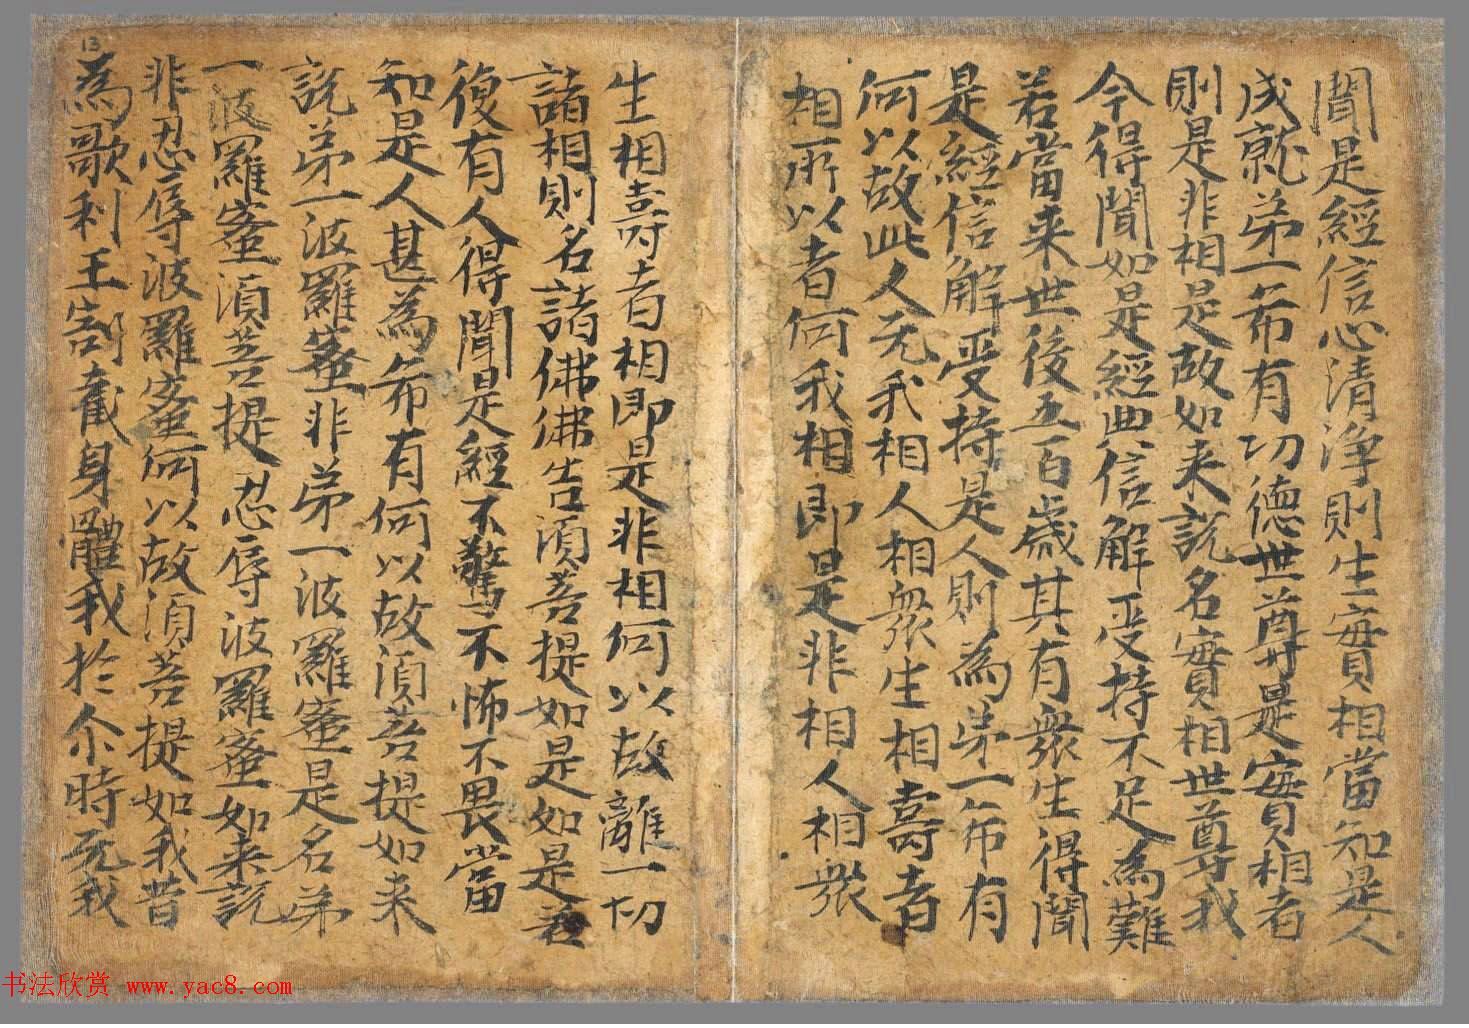 聞是經信心清淨則生實相當知是人
成就苐一希有功德世尊是實相者
則是非相是故如来說名實相世尊我
今得聞如是經典信解受持不足為難
若當来世後五百歲其有衆生得聞
是經信解受持是人則為苐一希有
何以故此人无我相人相衆生相壽者
相所以者何我相即是非相人相衆
生相壽者相即是非相何以故離一切
諸相則名諸佛佛告湏菩提如是如是若
復有人得聞是經不驚不怖不畏當
知是人甚為希有何以故湏菩提如来
說苐一波羅蜜非苐一波羅蜜是名苐
一波羅蜜湏菩提忍辱波羅蜜如来說
非忍辱波羅蜜何以故湏菩提如我昔
為歌利王割截身體我於尒時无我
13
书法欣赏 www.yac8.com